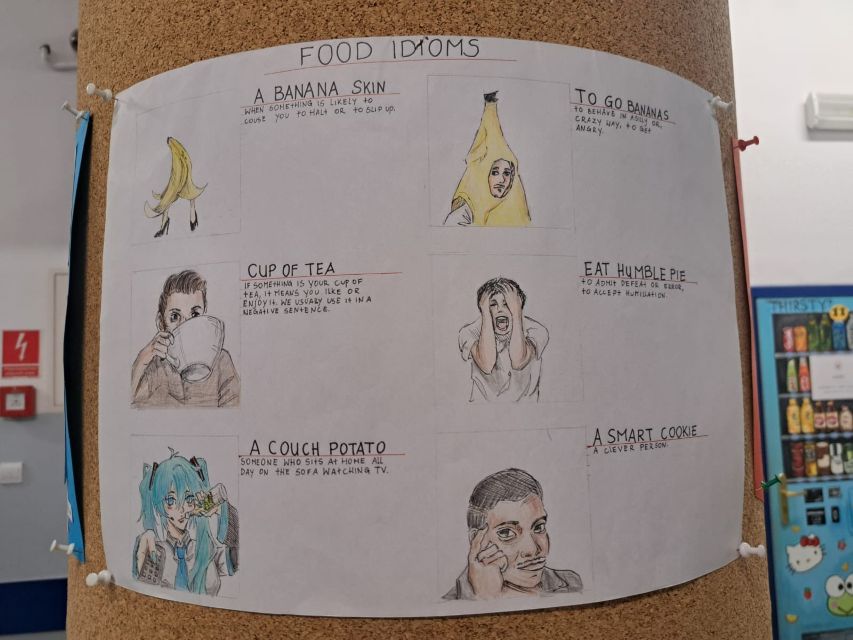 FOOD IDIOMS
A BANANA SKIN
WHEN SOMETHING IS LIKELY TO
COUSE YOU TO HALT OR TO SLIP UP.
TO GO BANANAS
TO BEHAVE IN A SILLY OR
CRAZY WAY, TO GET
ANGRY.
CUP OF TEA
IF SOMETHING IS YOUR CUP OF
TEA, IT MEANS YOU LIKE OR
ENJOY IT. WE USUALY USE IT IN A
NEGATIVE SENTENCE.
EAT HUMBLE PIE
TO ADMIT DEFEAT OR ERROR,
TO ACCEPT HUMILIATION.
A COUCH POTATO
SOMEONE WHO SITS AT HOME ALL
DAY ON THE SOFA WATCHING TV.
A SMART COOKIE
A CLEVER PERSON.
THIRSTY?
11